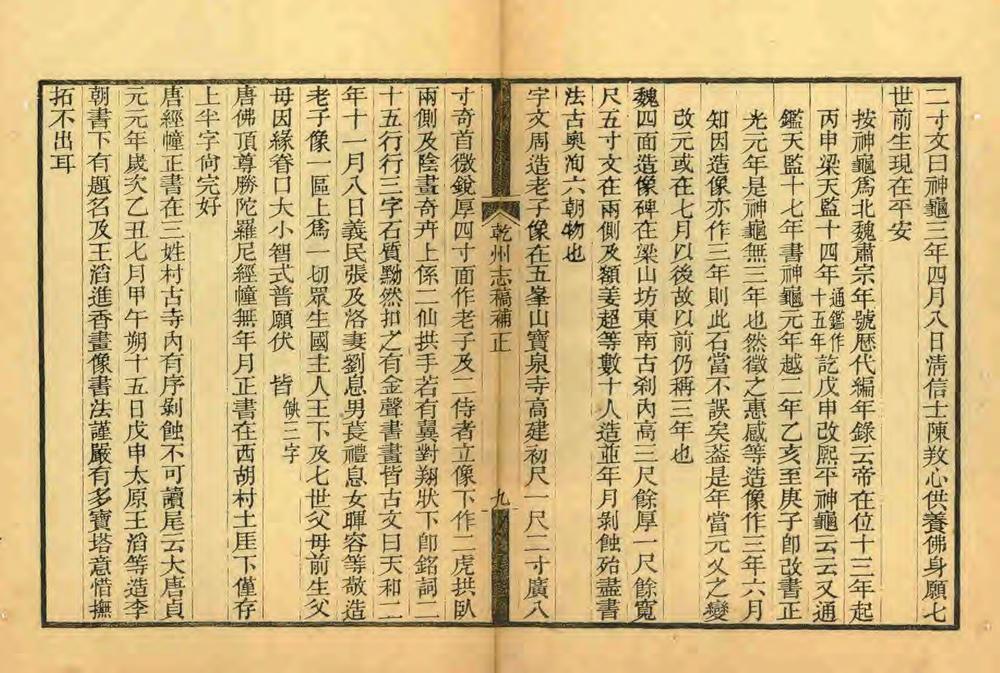 二寸文曰神龜三年四月八日清信士陳敎心供養佛身願七
世前生現在平安
按神龜爲北魏肅宗年號歷代編年錄云帝在位十三年起
丙申梁天監十四年通鑑作十五年訖戊申改熙平神龜云云又通
鑑天監十七年書神龜元年越二年乙亥至庚子卽改書正
光元年是神龜無三年也然徵之惠感等造像作三年六月
知因造像亦作三年則此石當不誤矣葢是年當元乂之變
改元或在七月以後故以前仍稱三年也
魏四面造像碑在梁山坊東南古刹內高三尺餘厚一尺餘寬
尺五寸文在兩側及額姜超等數十人造並年月剝蝕殆盡書
法古奧洵六朝物也
字文周造老子像在五峯山寶泉寺高建初尺一尺二寸廣八
乾州志稿補正
九
寸奇首微銳厚四寸面作老子及二侍者立像下作二虎拱臥
兩側及陰畫奇卉上係二仙拱手若有翼對翔狀下卽銘詞二
十五行行三字石質黝然扣之有金聲書畫皆古文曰天和二
年十一月八日義民張及洛妻劉息男萇禮息女暉容等敬造
老子像一區上爲一切眾生國主人王下及七世父母前生父
母因緣眷口大小智式普願伏 皆缺三字
唐佛頂尊勝陀羅尼經幢無年月正書在西胡村土厓下僅存
上半字尙完好
唐經幢正書在三姓村古寺內有序剝蝕不可讀尾云大唐貞
元元年歲次乙丑七月甲午朔十五日戊申太原王滔等造李
朝書下有題名及王滔進香畫像書法謹嚴有多寶塔意惜撫
拓不出耳